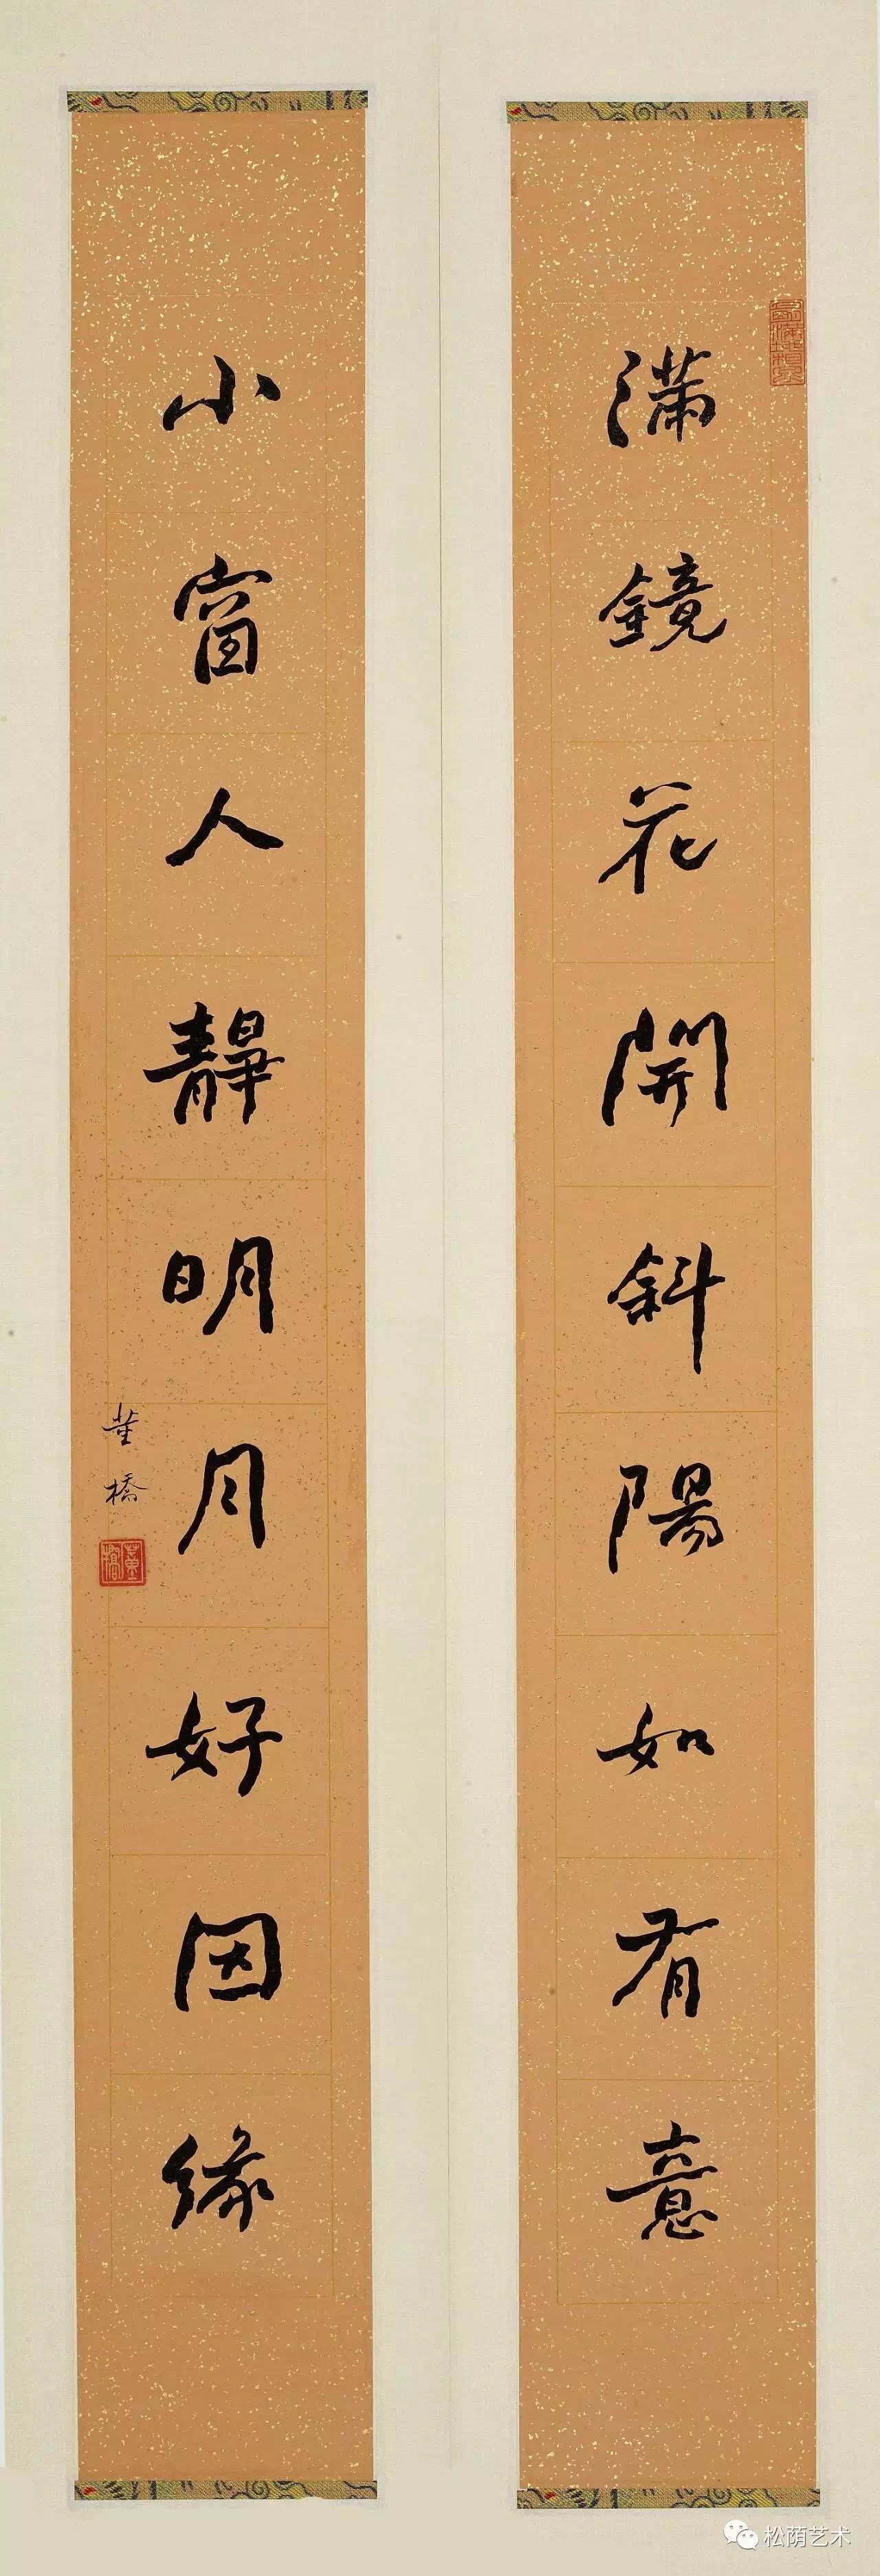 滿鏡花開斜陽如有意
小窗人靜明月好因緣
董橋
董橋
松荫艺术